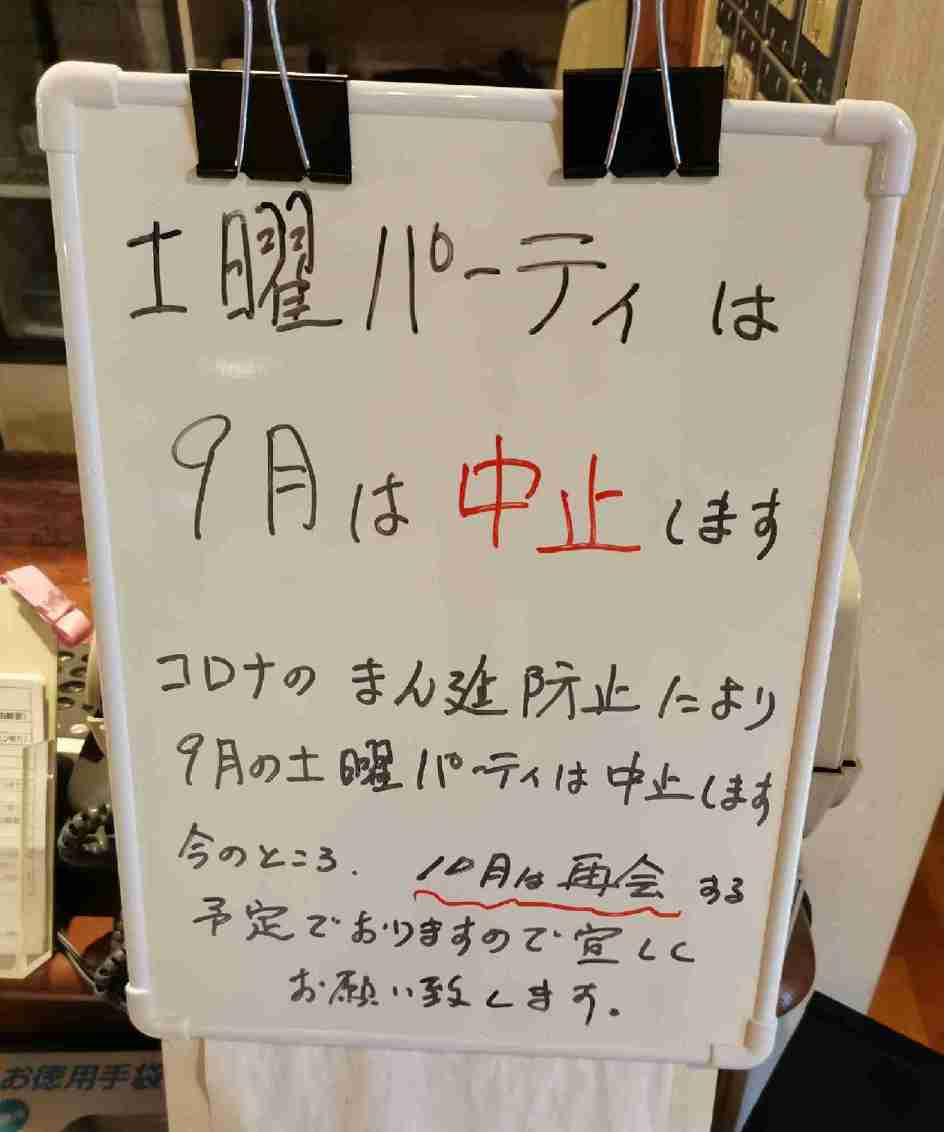 土曜パーティは
9月は中止します
コロナのまん延防止により
9月の土曜パーティは中止します
今のところ、10月は再会する
予定でおりますので宜しく
お願い致します。
お徳用手袋